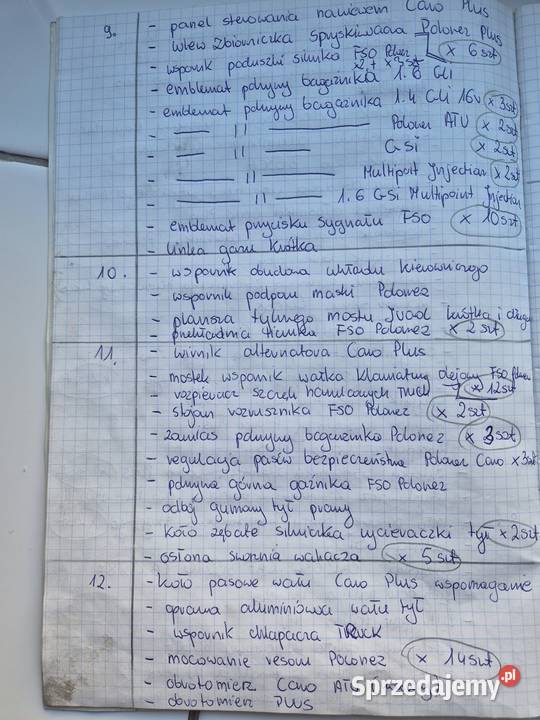 9. - panel sterowania nawiewem Caro Plus
- wlew zbiorniczka spryskiwacza Polonez Plus
- wspornik poduszki silnika FSO Polonez x 6 szt
x2 + x 3 szt
- emblemat pokrywy bagażnika 1.6 GLI
- emblemat pokrywy bagażnika 1.4 GLI 16V x 3szt
- —— 11 —— Polonez ATU x 2szt
- —— 11 —— GSi x 2szt
- —— 11 —— Multipoint Injection x 2szt
- —— 11 —— 1.6 GSi Multipoint Injection
- emblemat przycisku sygnału FSO x 10szt
- linka gazu krótka
10. - wspornik obudowa układu kierowniczego
- wspornik podpory maski Polonez
- plansza tylnego mostu krótka i długa
- przekładnia FSO Polonez x 2 szt
11. - wirnik alternatora Caro Plus
- mostek wspornik wałka klawiatury olejowy FSO Polonez
- rozpieracz szczęk hamulcowych Truck x 12szt
- stojan rozrusznika FSO Polonez x 2szt
- zawias pokrywy bagażnika Polonez x 3szt
- regulacja pasów bezpieczeństwa Polonez Caro x 3szt
- pokrywa górna gaźnika FSO Polonez
- odbój gumowy tył prawy
- koło zębate silniczka wycieraczki tył x 2szt
- osłona sworznia wahacza x 5szt
12. - koło pasowe wału Caro Plus wspomaganie
- oprawa aluminiowa wału tył
- wspornik chlapacza TRUCK
- mocowanie resoru Polonez x 14szt
- obrotomierz Caro ATU
- obrotomierz PLUS
Sprzedajemy.pl